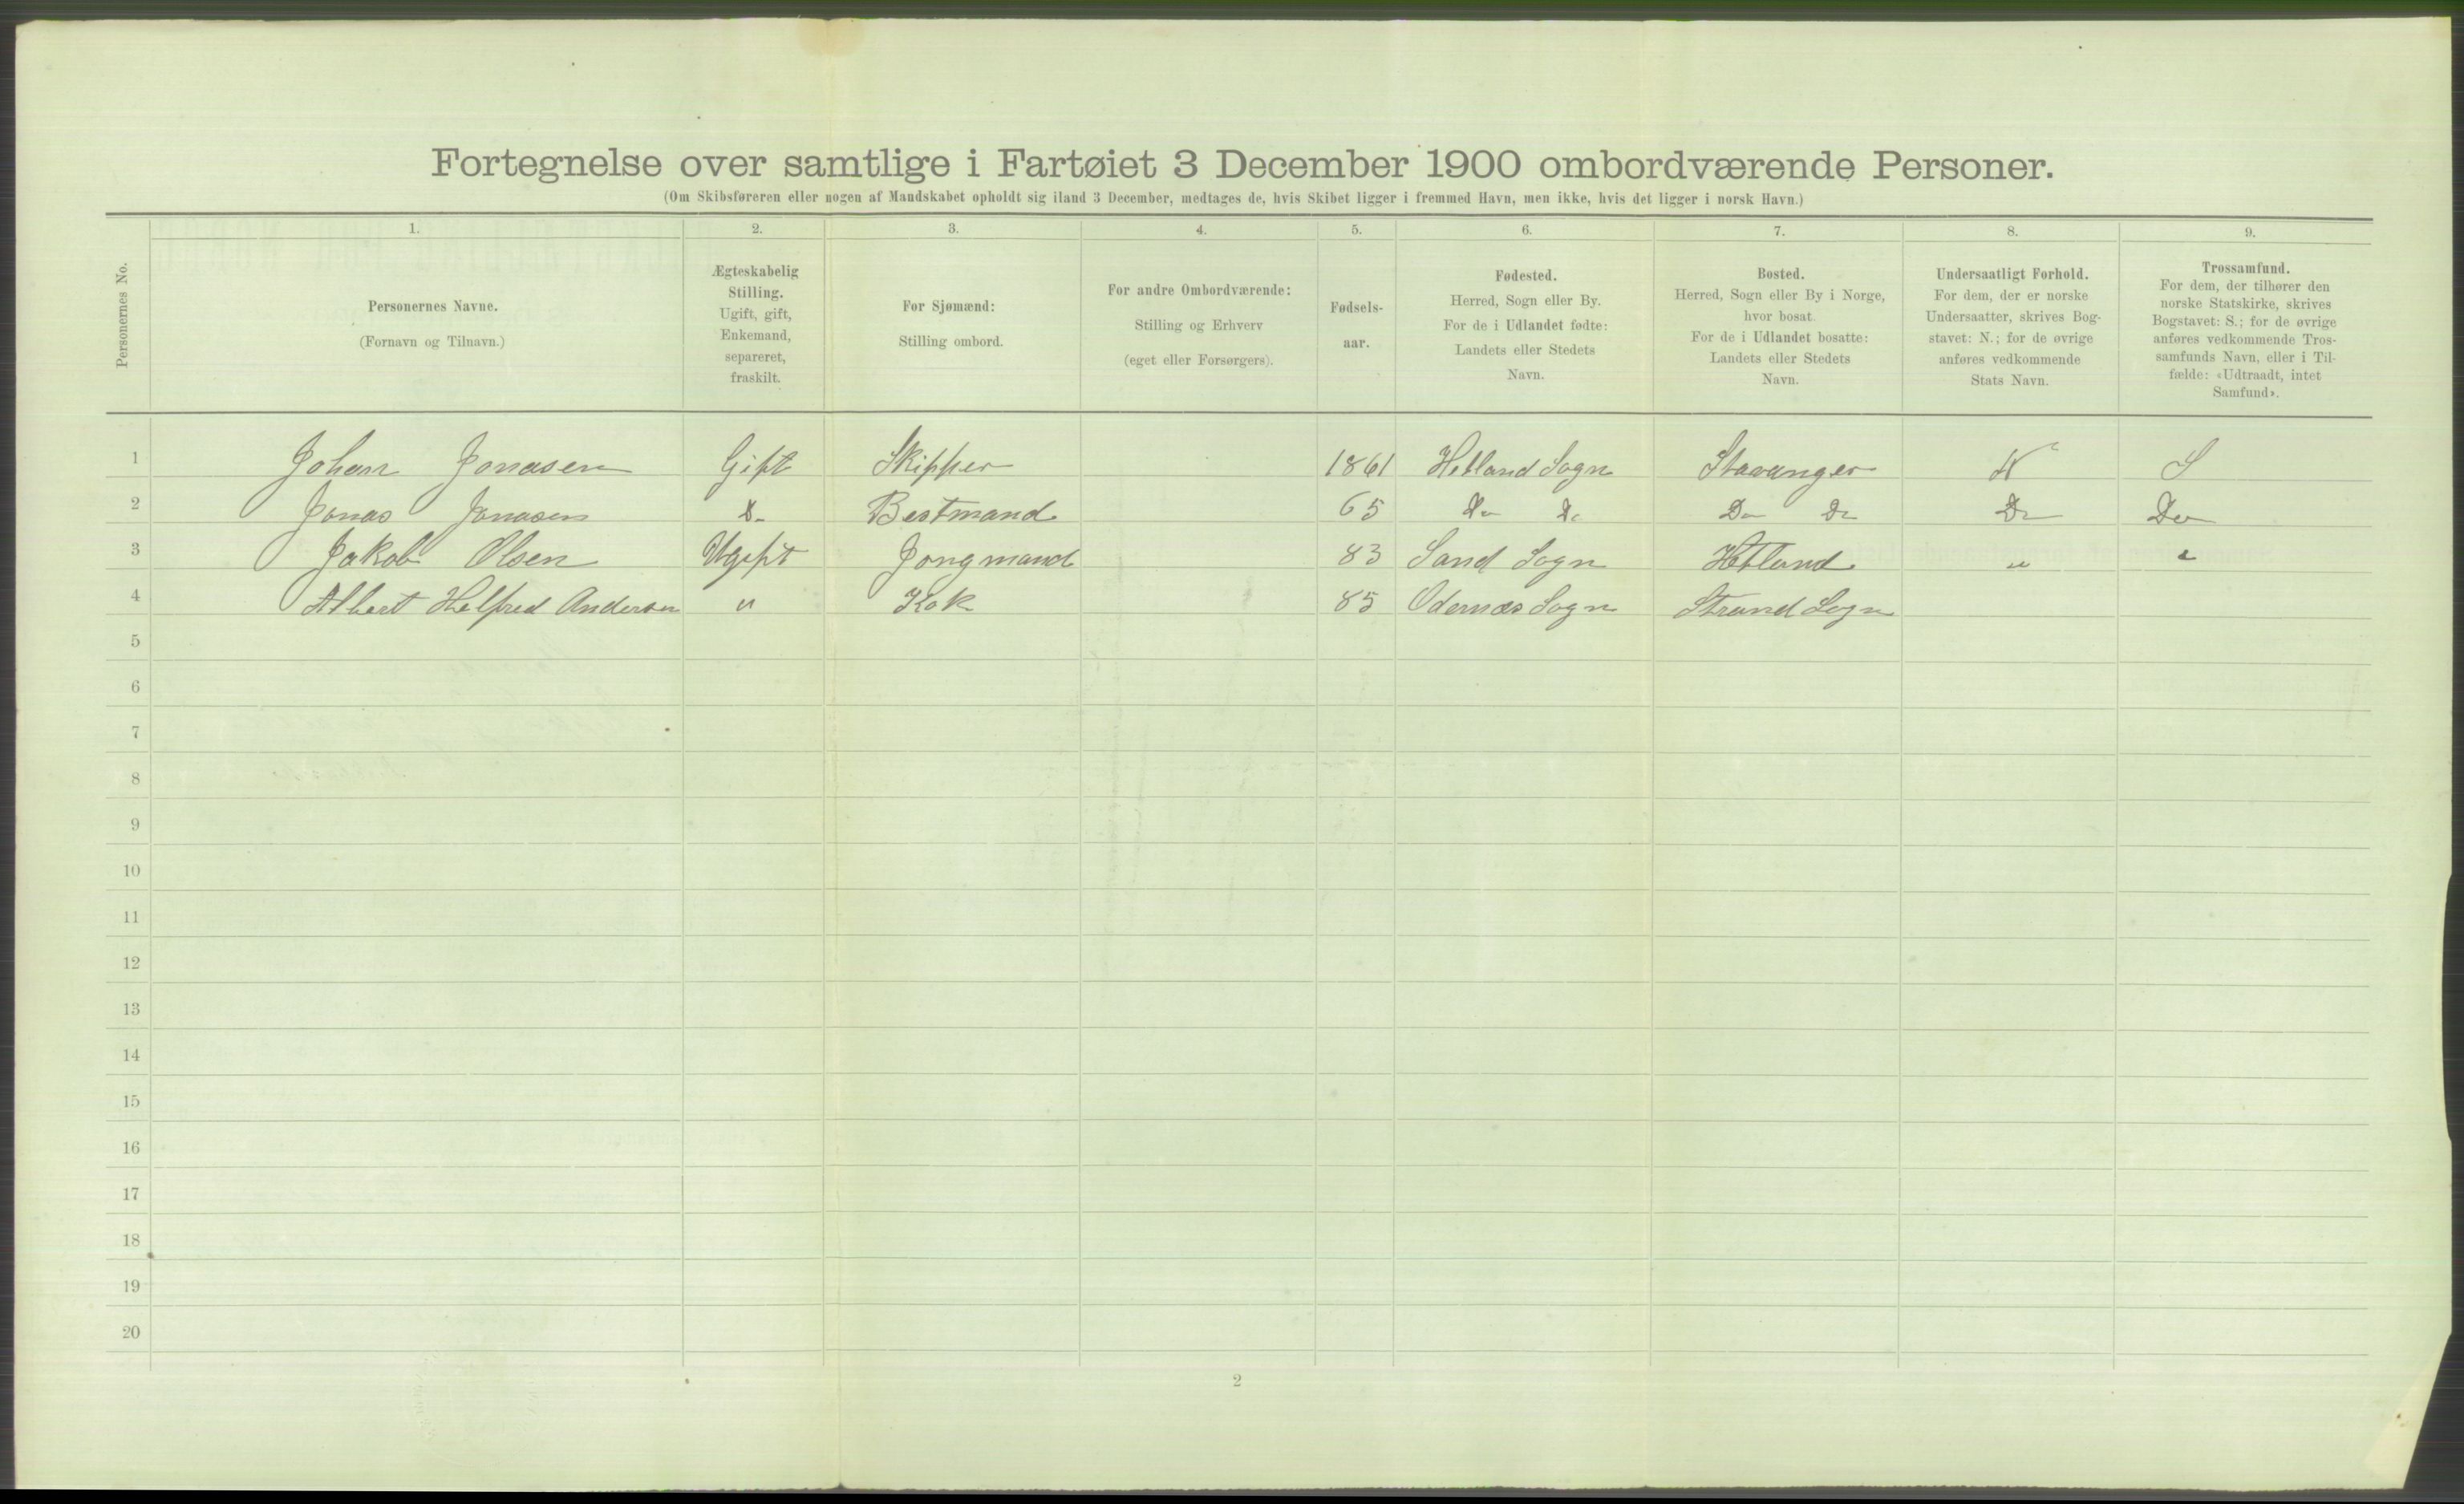 Fortegnelse over samtlige i Fartøiet 3 December 1900 ombordværende Personer.
(Om Skibsføreren eller nogen af Mandskabet opholdt sig iland 3 December, medtages de, hvis Skibet ligger i fremmed Havn, men ikke, hvis det ligger i norsk Havn.)
Personernes No.
1.
Personernes Navne.
(Fornavn og Tilnavn.)
2.
Ægteskabelig
Stilling.
Ugift, gift,
Enkemand,
separeret,
fraskilt.
3.
For Sjømænd:
Stilling ombord.
4.
For andre Ombordværende:
Stilling og Erhverv
(eget eller Forsørgers).
5.
Fødsels-
aar.
6.
Fødested.
Herred, Sogn eller By.
For de i Udlandet fødte:
Landets eller Stedets
Navn.
7.
Bosted.
Herred, Sogn eller By i Norge,
hvor bosat.
For de i Udlandet bosatte:
Landets eller Stedets
Navn.
8.
Undersaatligt Forhold.
For dem, der er norske
Undersaatter, skrives Bog-
stavet: N.; for de øvrige
anføres vedkommende
Stats Navn.
9.
Trossamfund.
For dem, der tilhører den
norske Statskirke, skrives
Bogstavet: S.; for de øvrige
anføres vedkommende Tros-
samfunds Navn, eller i Til-
fælde: «Udtraadt, intet
Samfund».
1 Johan Jonasen Gift Skipper 1861 Hetland Sogn Stavanger N S
2 Jonas Jonasen Do Bestmand 65 Do Do Do Do Do Do
3 Jakob Olsen Ugift Jongmand 83 Sand Sogn Hetland " "
4 Albert Helfred Andersen " Kok 85 Sogn Strand Sogn
5
6
7
8
9
10
11
12
13
14
15
16
17
18
19
20
2